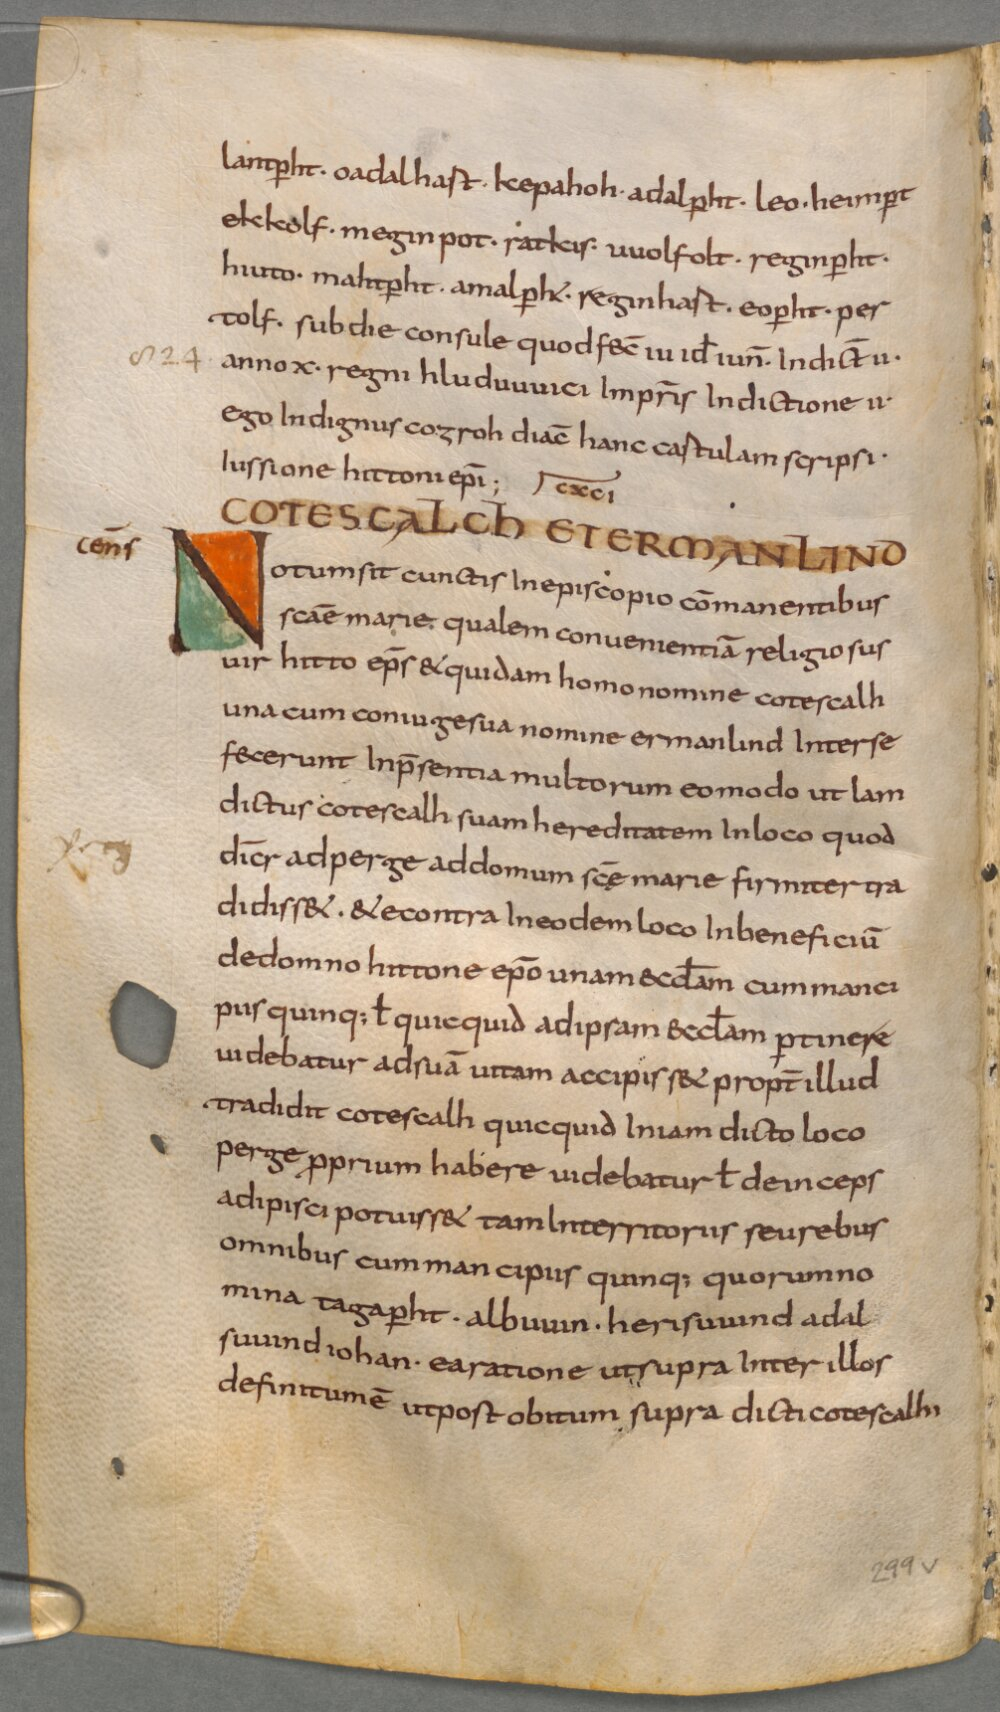 lantp̄ht· oadalhast· kepahoh· adalp̄ht· leo· heimp̄t
ekkolf· meginpot· ratkis· uuolfolt· reginp̄ht·
hitto· mahtp̄ht· amalp̄ht· reginhast· eop̄ht· per
tolf· sub die consule quod fec̄ iu id̄ iun̄· Indict̄ ii·
824
anno x· regni hluduuuici Impr̄is Indictione ii·
ego Indignus cozroh diac̄ hanc castulam scripsi·
Iussione hittoni ep̄i;
cxci
COTESCALCH ET ERMANLIND
cen̄s
Notum sit cunctis In episcopio com̄manentibus
sc̄ae marie qualem conuenientiā religiosus
uir hitto ep̄s & quidam homo nomine cotescalh
una cum coniuge sua nomine ermanlind Inter se
fecerunt In p̄sentia multorum eo modo ut Iam
dictus cotescalh suam hereditatem In loco quod
dic̄r ad perge ad domum sc̄ę marie firmiter tra
didiss&· & econtra In eodem loco In beneficiū
de domno hittone ep̄o unam eccl̄am cum manci
piis quinq; ł quicquid ad ipsam eccl̄am p̄tinere
uidebatur ad suā uitam accipiss& propt̄ illud
tradidit cotescalh quicquid In iam dicto loco
perge p̄prium habere uidebatur ł deinceps
adipisci potuiss& tam In territoriis seu rebus
omnibus cum mancipiis quinq; quorum no
mina tagap̄ht· albuuin· herisuuind adal
suuind iohan· ea ratione ut supra Inter illos
definitum ē ut post obitum supra dicti cotescalhi
299 v